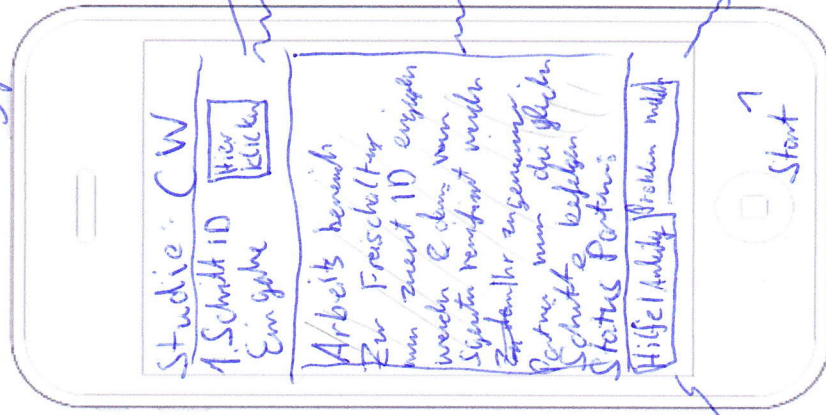 Studie: CW
1. Schritt ID
Eingabe
Hier
klicken
Arbeitsbereich
Zur Freischaltung
muss zuerst ID eingegeben
werden & dann vom
System verifiziert werden
Ihr zugewiesener
Partner muss die gleichen
Schritte befolgen
Status Partner:
Hilfe/Anleitg
Problem melden
1
Start